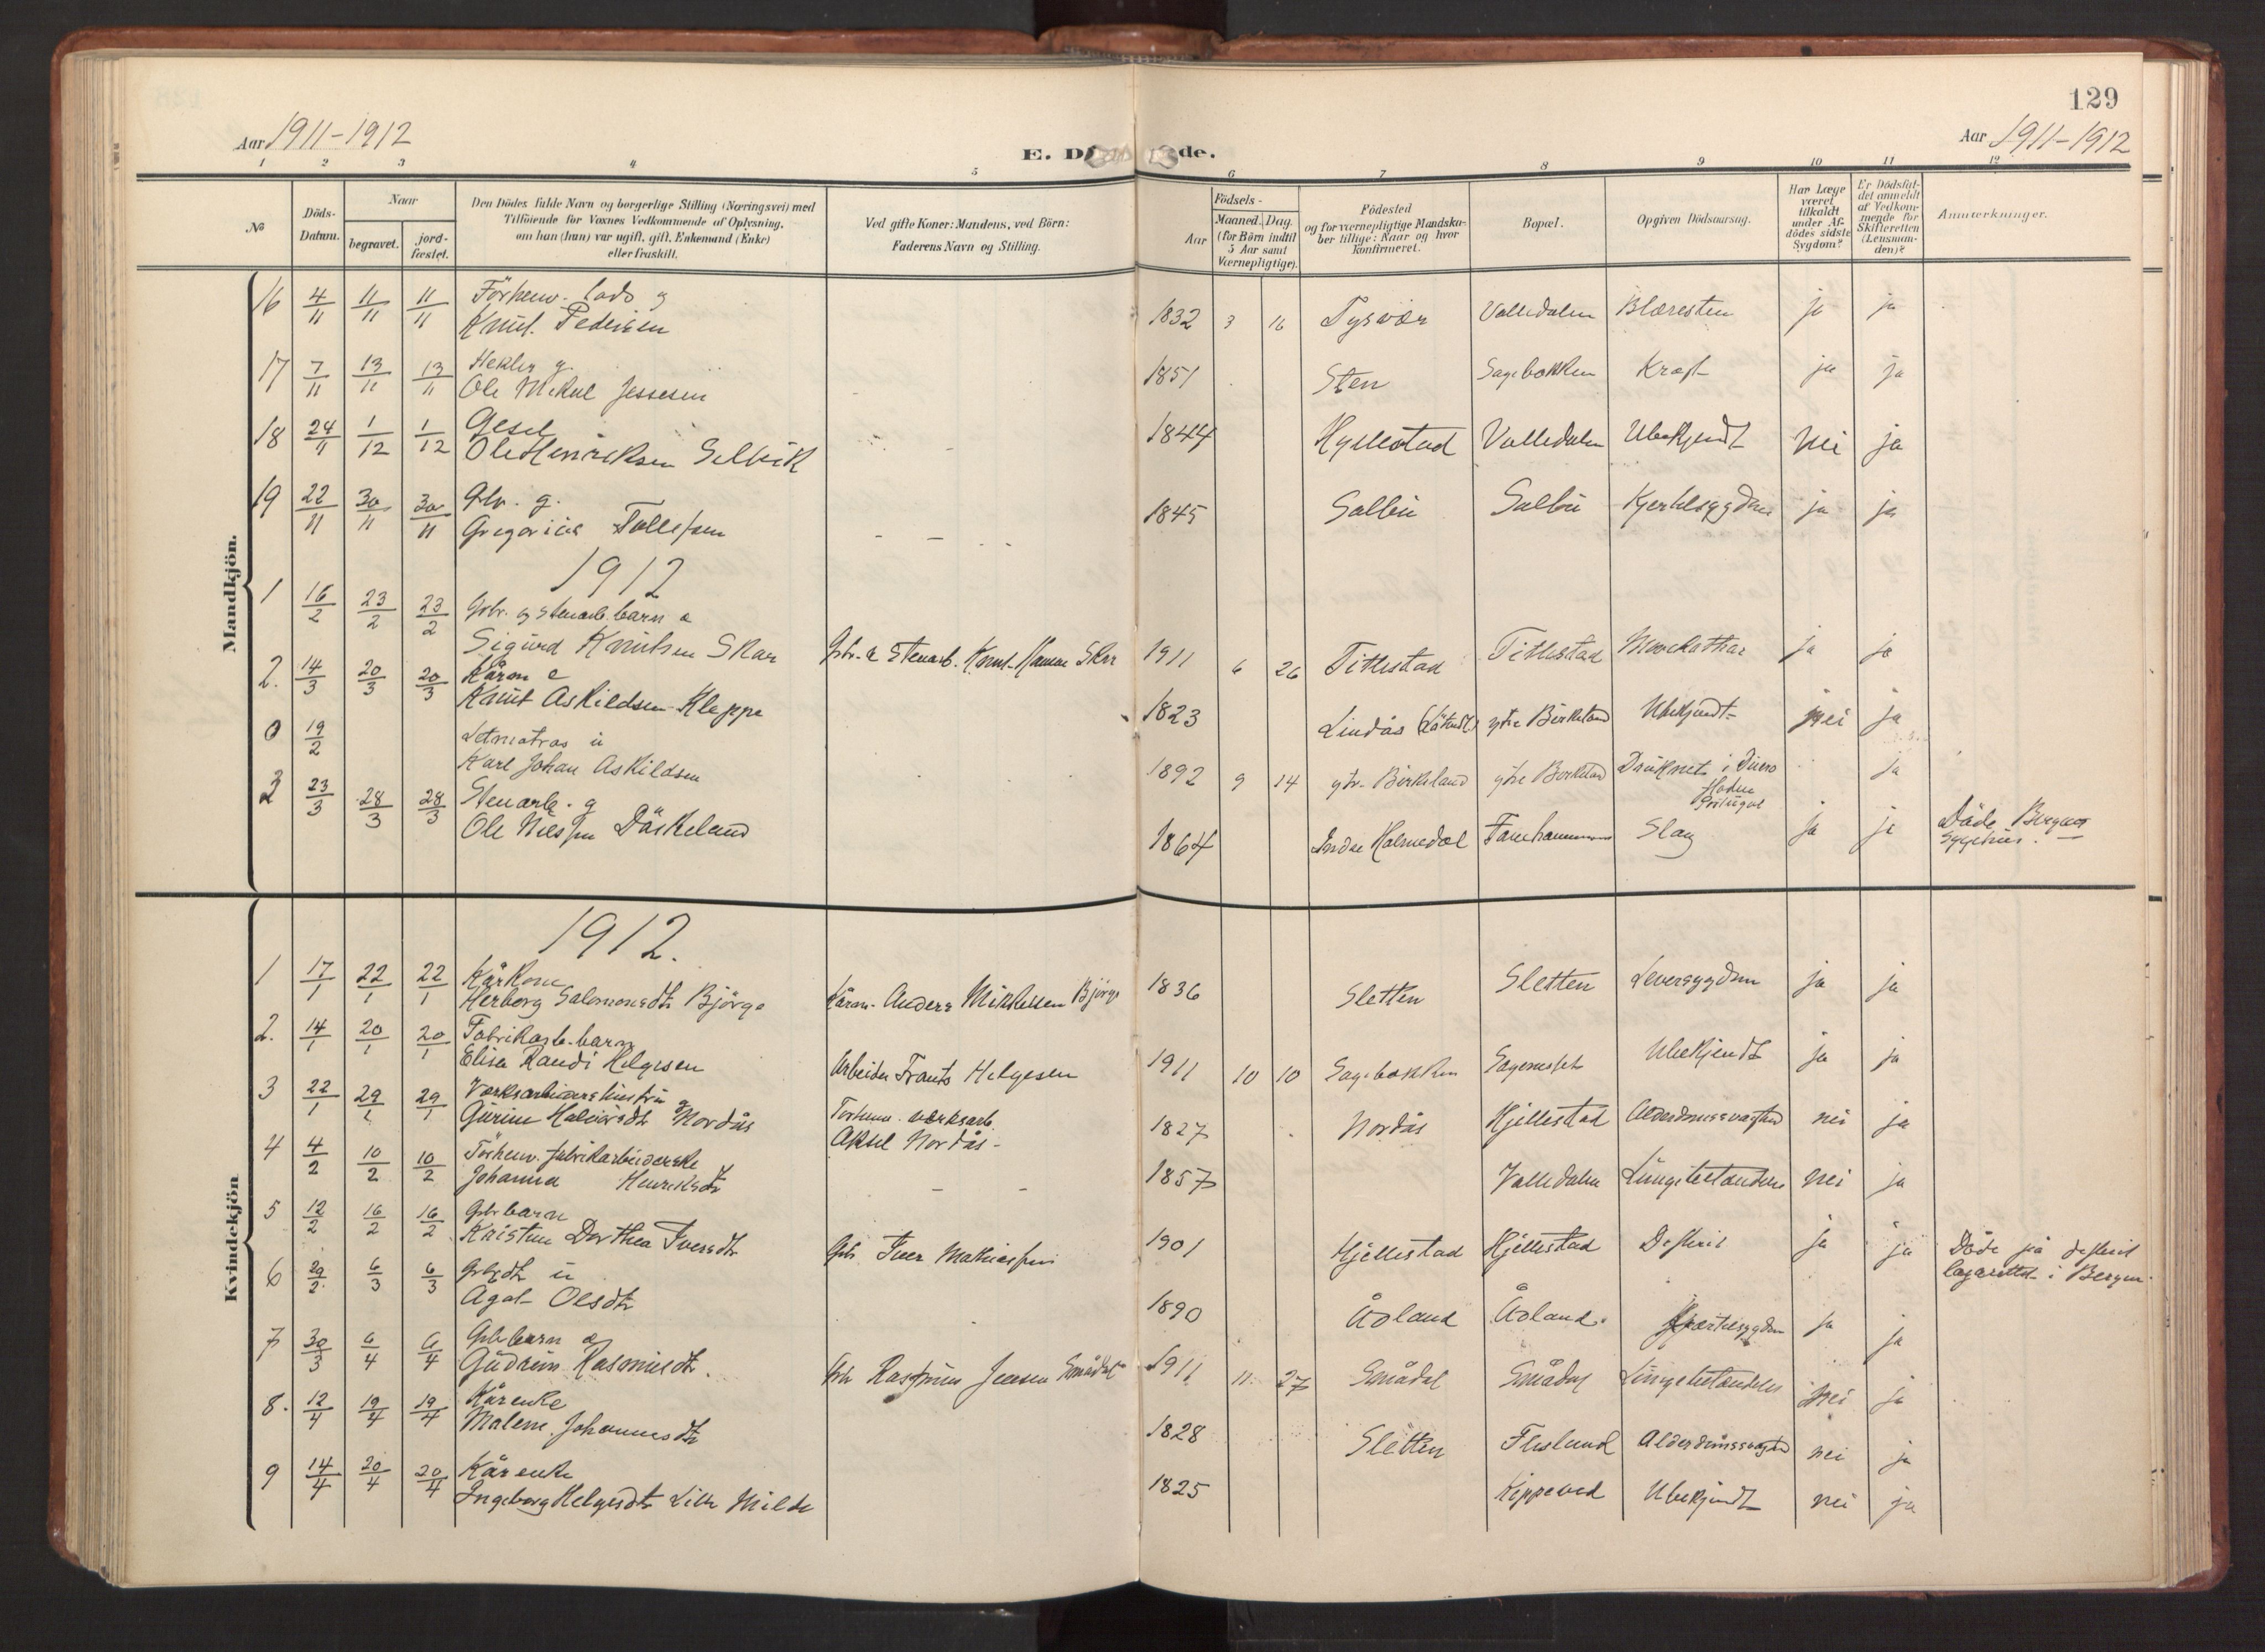 129
Aar 1911-1912
Aar 1911-1912
E. D de.
1 2 3 4 5 6 7 8 9 10 11 12
№
Döds-Datum.
Naar
begravet.
jord-fæstet.
Den Dödes fulde Navn og borgerlige Stilling (Næringsvei) med
Tilföiende for Voxnes Vedkommende af Oplysning,
om han (hun) var ugift, gift, Enkemand (Enke)
eller fraskilt.
Ved gifte Koner: Mandens, ved Börn:
Faderens Navn og Stilling.
Aar
Födsels-
Maaned. Dag.
(for Börn indtil
5 Aar samt
Værnepligtige).
Födested
og for værnepligtige Mandska-
ber tillige: Naar og hvor
konfirmeret.
Bopæl.
Opgiven Dödsaarsag.
Har Læge
været
tilkaldt
under Af-
dödes sidste
Sygdom?
Er Dödsfal-
det anmeldt
af Vedkom-
mende for
Skifteretten
(Lensman-
den)?
Anmærkninger.
Mandkjön.
16 4/11 11/11 11/11 Förhenv. lods g
Knut Pedersen 1832 3 16 Tysvær Valledalen Blæresten ja ja
17 7/11 13/11 13/11 Hekler g.
Ole Mikal Jessesen 1851 Sten Sagebakken Kræft ja ja
18 24/11 1/12 1/12 Gesel
Ole Henriksen Selvik 1844 Hyllestad Valledalen Ubekjendt nei ja
19 22/11 30/11 30/11 Gbr. g.
Gregorius Tollefsen 1845 Salbu Salbu Hjertesygdom ja ja
1912
1 16/2 23/2 23/2 Gbr. og stenarb. barn
Sigurd Knutsen Skar Gbr. & Stenarb. Knut Hansen Skar 1911 6 26 Tittlestad Tittlestad ja ja
2. 14/3 20/3 20/3 Kårm e
Knut Askildsen Kleppe 1823 Lindås ytre Birkeland Ubekjendt nei ja
0 19/2 Letmatros u
Karl Johan Askildsen 1892 9 14 ytr. Birkeland ytre Birkeland Druknet i
Portugal ja
3 23/3 28/3 28/3 Stenarb. g
Ole Nilssen Dåskeland 1864 Indre Holmedal Fanehammeren Slag ja ja Döde Bergens
Sygehus.
Kvindekjön
1912.
1 17/1 22/1 22/1 Kårkone
Herborg Salomonsdtr Björge Kårm. Anders Mikkelsen Björge 1836 Sletten Sletten Leversygdom ja ja
2. 14/1 20/1 20/1 Fabrikarb. barn
Elisa Randi Helgesen Arbeider Frants Helgesen 1911 10 10 Sagebakken Ubekjendt ja ja
3 22/1 29/1 29/1 Værksarbeiders hustru g
Gurine Halvorsdtr Nordås Forhenv. værksarb.
Aksel Nordås 1827 Nordås Hjellestad Alderdomssvaghed nei ja
4 4/2 10/2 10/2 Förhenv. fabrikarbeiderske
Johanna Henriksdtr 1857 Valledalen Lungebetændelse nei ja
5 12/2 16/2 16/2 Gbr barn
Kristine Dorthea Iversdtr Gbr. Iver Mathiassen 1901 Hjellestad Hjellestad Difterit ja ja Döde på difterit
lazarettet i Bergen.
6 29/2 6/3 6/3 Gbr dtr u
Agat Olsdtr 1890 Ådland Ådland. Hjertesygdom ja ja
7 30/3 6/4 6/4 Gbr barn
Gudrun Rasmusdtr. Gbr Rasmus Jensen Smådal 1911 11 27 Smådal Smådal Lungebetændelse nei ja
8. 12/4 19/4 19/4 Kårenke
Malene Johannesdtr 1828 Sletten Flesland Alderdomssvaghed nei ja
9 14/4 20/4 20/4 Kårenke
Ingeborg Helgesdtr Lille Milde 1825 Ubekjendt nei ja